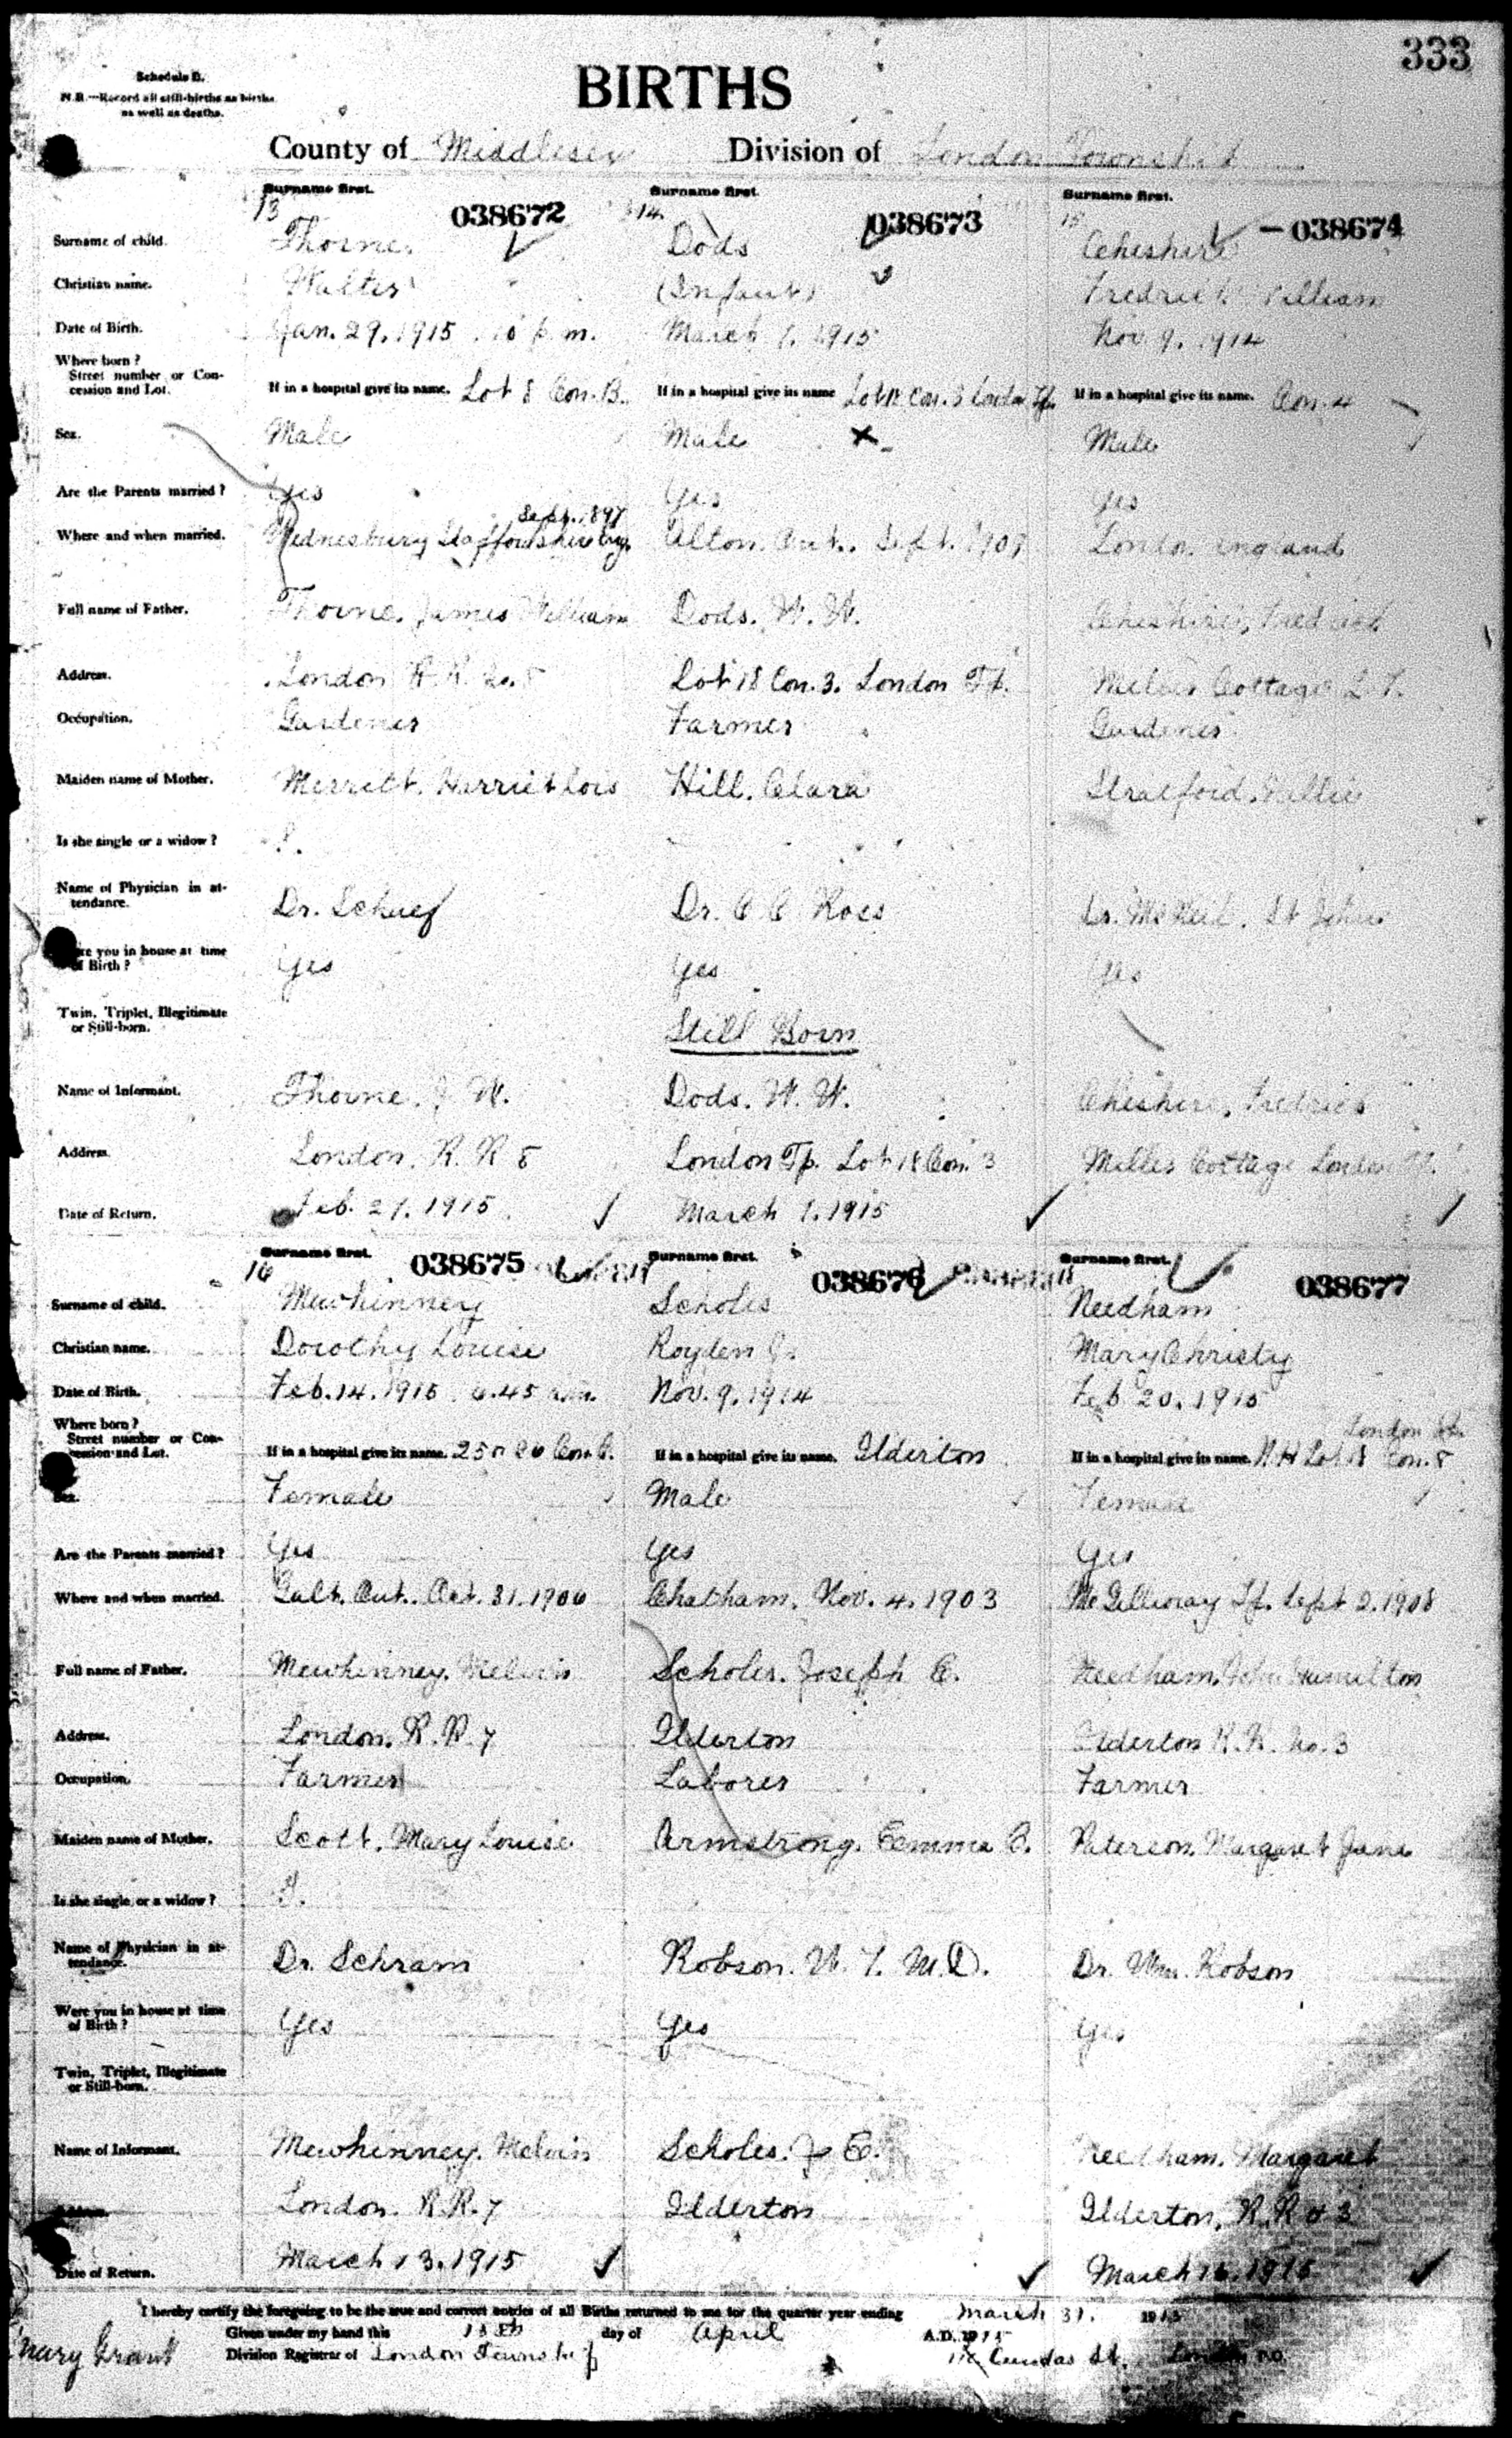 333
Schedule B.
N.B.—Record all still-births as births
as well as deaths.
BIRTHS
County of Middlesex Division of London Township
Surname first. Surname first. Surname first.
13 038672 14 038673 15 038674
Surname of child. Thorne. Dods Cheshire
Christian name. Walter (Infant) Fredrick William
Date of Birth. Jan. 29. 1915 p.m. March 1. 1915 Nov. 9. 1914
Where born?
Street number or Con-
cession and Lot. If in a hospital give its name. Lot 8 Con. B. If in a hospital give its name Lot 18 Con. 3 London Tp. If in a hospital give its name. Con. 4
Sex. Male Male Male
Are the Parents married? Yes Yes Yes
Sept. 1897
Where and when married. Wednesbury Staffordshire Eng. Alton. Ont. Sept. London England
Full name of Father. Thorne. James William Dods. W. W. Cheshire, Fredrick
Address. London R. R. No. 8 Lot 18 Con. 3. London Tp. Cottage L. T.
Occupation. Gardener Farmer Gardener
Maiden name of Mother. Merritt. Harriet Lois Hill. Clara
Is she single or a widow?
Name of Physician in at-
tendance. Dr. Dr. C C Ross Dr. McNeil. St Johns
Were you in house at time
of Birth? Yes Yes Yes
Twin, Triplet, Illegitimate
or Still-born. Still Born
Name of Informant. Thorne. J. W. Dods. W. W. Cheshire, Fredrick
Address. London. R. R 8 London Tp. Lot 18 Con. 3 Cottage London Tp.
Date of Return. Feb. 27. 1915 March 1. 1915
Surname first. Surname first. Surname first.
16 038675 038676 038677
Surname of child. Mewhinney Scholes Needham
Christian name. Dorothy Louise Royden J. Mary Christy
Date of Birth. Feb. 14. 1915 6.45 a.m. Nov. 9. 1914 Feb 20. 1915
Where born?
Street number or Con-
cession and Lot. If in a hospital give its name. If in a hospital give its name. Ilderton If in a hospital give its name. London Tp. Con. 8
Sex. Female Male Female
Are the Parents married? Yes Yes Yes
Where and when married. Galt. Ont. Oct. 31. 1906 Chatham. Nov. 4. 1903 McGillivray Tp. Sept 2. 1908
Full name of Father. Mewhinney. Melvin Scholes. Joseph E. Needham. John Hamilton
Address. London. R. R. 7 Ilderton Ilderton R. R. No. 3
Occupation. Farmer Laborer Farmer
Maiden name of Mother. Scott. Mary Louise Armstrong. Emma C. Paterson. Margaret Jane
Is she single or a widow?
Name of Physician in at-
tendance. Dr. Schram Robson. W. T. M.D. Dr. Wm. Robson
Were you in house at time
of Birth? Yes Yes Yes
Twin, Triplet, Illegitimate
or Still-born.
Name of Informant. Mewhinney. Melvin Scholes. J E. Needham. Margaret
Address. London. R. R. 7 Ilderton Ilderton, R. R # 3
Date of Return. March 13. 1915 March 16. 1915
I hereby certify the foregoing to be the true and correct entries of all Births returned to me for the quarter year ending March 31. 1915
Given under my hand this day of April A.D. 1915
Mary Grant Division Registrar of London Township Dundas St. London P.O.